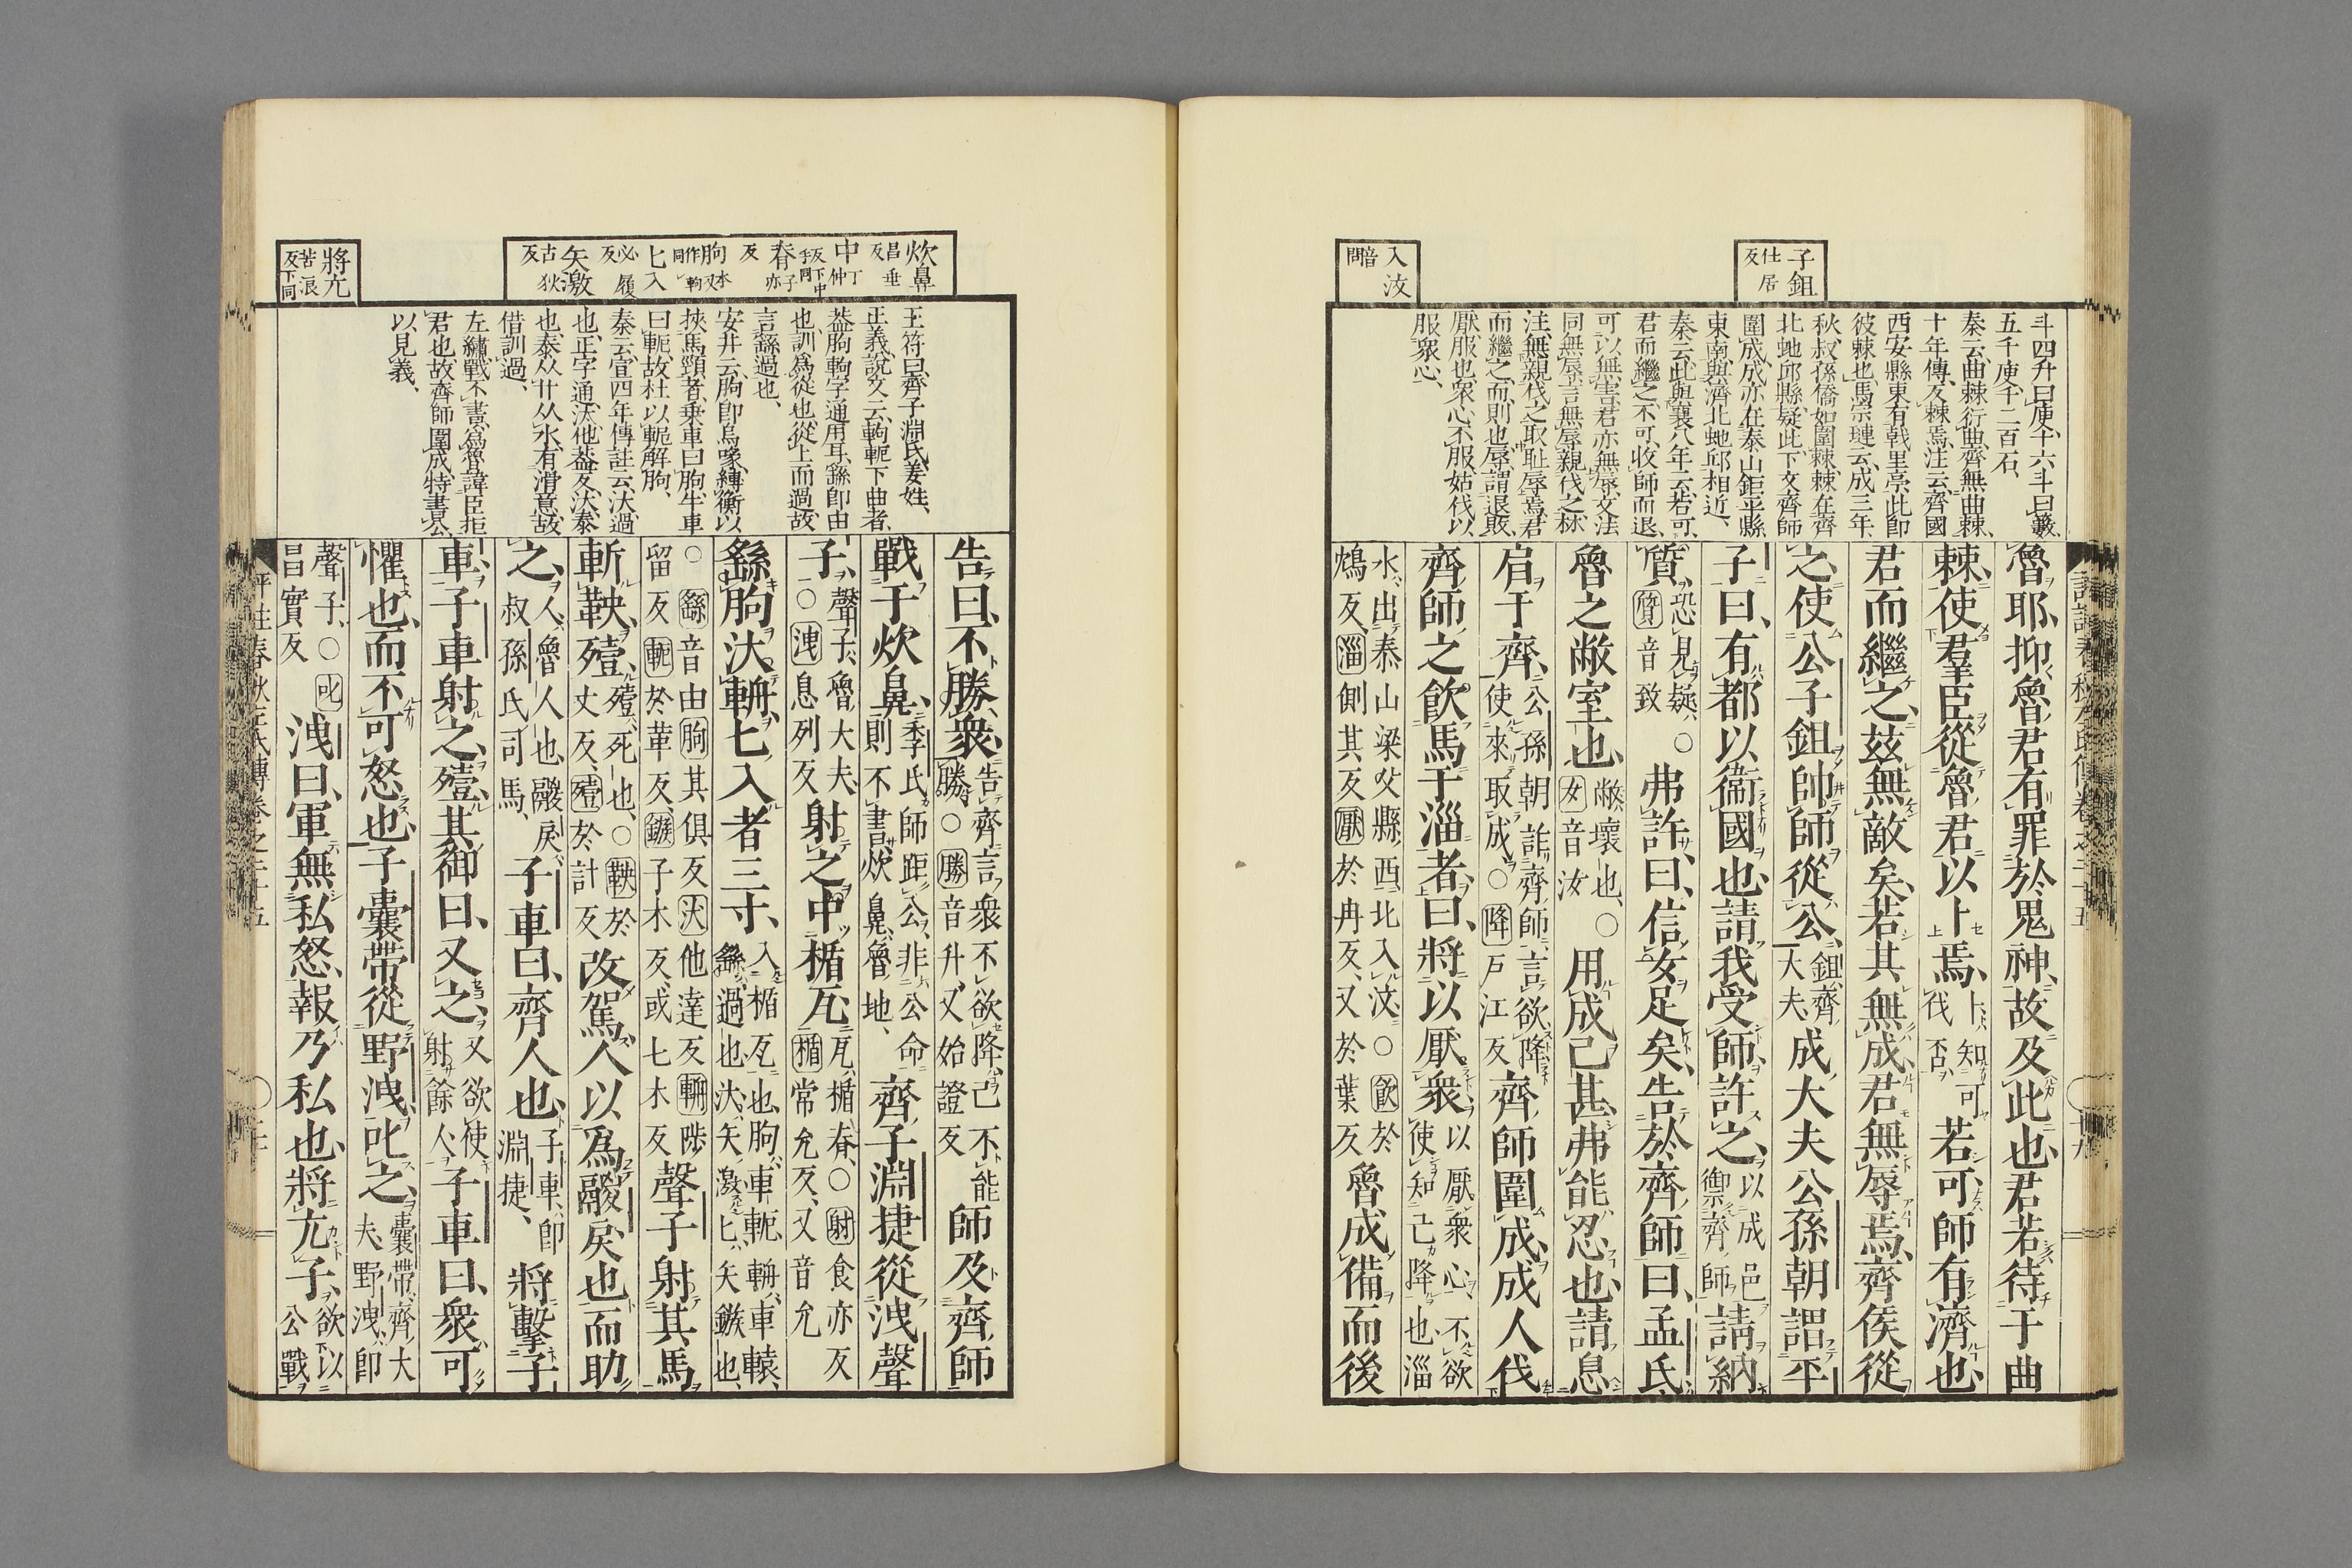 子鉏仕居反
入汶音問
斗四升曰庾十六斗曰籔
五千庾千二百石
秦云曲棘衍曲齊無曲棘
十年傳反棘焉注云齊國
西安縣東有戟里亭此卽
彼棘也馬宗璉云成三年
秋叔孫僑如圍棘棘在齊
北虵邱縣疑此下文齊師
圍成成亦在泰山鉅平縣
東南與濟北虵邱相近
秦云此與襄八年云若可
君而繼之不可收師而退
可以無害君亦無辱文法
同無辱言無辱親伐之林
注無親伐之取耻辱焉君
而繼之而則也辱謂退敗
厭服也衆心不服姑伐以
服衆心
魯耶抑魯君有罪於鬼神故及此也君若待于曲
棘使羣臣從魯君以卜焉卜知可伐否若可師有濟也
君而繼之茲無敵矣若其無成君無辱焉齊侯從
之使公子鉏帥師從公鉏齊大夫成大夫公孫朝謂平
子曰有都以衞國也請我受師許之以成邑禦齊師請納
質恐見疑○質音致弗許曰信女足矣告於齊師曰孟氏
魯之敝室也敝壞也○女音汝用成已甚弗能忍也請息
肩于齊公孫朝詐齊師言欲降使來取成○降戸江反齊師圍成成人伐
齊師之飮馬于淄者曰將以厭衆以厭衆心不欲使知己降也淄
水出泰山梁父縣西北入汶○飮於鴆反淄側其反厭於冉反又於葉反魯成備而後
炊鼻昌垂反
中丁仲反下中手同
脊子亦反
胊又作軥同
匕入必履反
矢激古狄反
將亢苦浪反下同
王符曰齊子淵氏姜姓
正義說文云軥軛下曲者
葢胊軥字通用耳繇卽由
也訓爲從也從上而過故
言繇過也
安井云胊卽烏喙縛衡以
挾馬頸者乘車曰胊牛車
曰軛故杜以軛解胊
秦云宣四年傳註云汏過
也正字通汏他葢反汏泰
也泰从廾从水有滑意故
借訓過
左繡戰不書爲魯諱臣拒
君也故齊師圍成特書公
以見義
告曰不勝衆告齊言衆不欲降己不能勝○勝音升又始證反師及齊師
戰于炊鼻季氏師距公非公命則不書炊鼻魯地齊子淵捷從洩聲
子聲子魯大夫○洩息列反射之中楯瓦瓦楯脊○射食亦反楯常允反又音允
繇胊汏輈匕入者三寸入楯瓦也胊車軛輈車轅繇過也汏矢激匕矢鏃也
○繇音由胊其俱反汏他達反輈陟留反軛於革反鏃子木反或七木反聲子射其馬
斬鞅殪殪死也○鞅於丈反殪於計反改駕人以爲鬷戾也而助
之人魯人也鬷戾叔孫氏司馬子車曰齊人也子車卽淵捷將擊子
車子車射之殪其御曰又之又欲使射餘人子車曰衆可
懼也而不可怒也子囊帶從野洩叱之囊帶齊大夫野洩卽
聲子○叱昌實反洩曰軍無私怒報乃私也將亢子欲以公戰